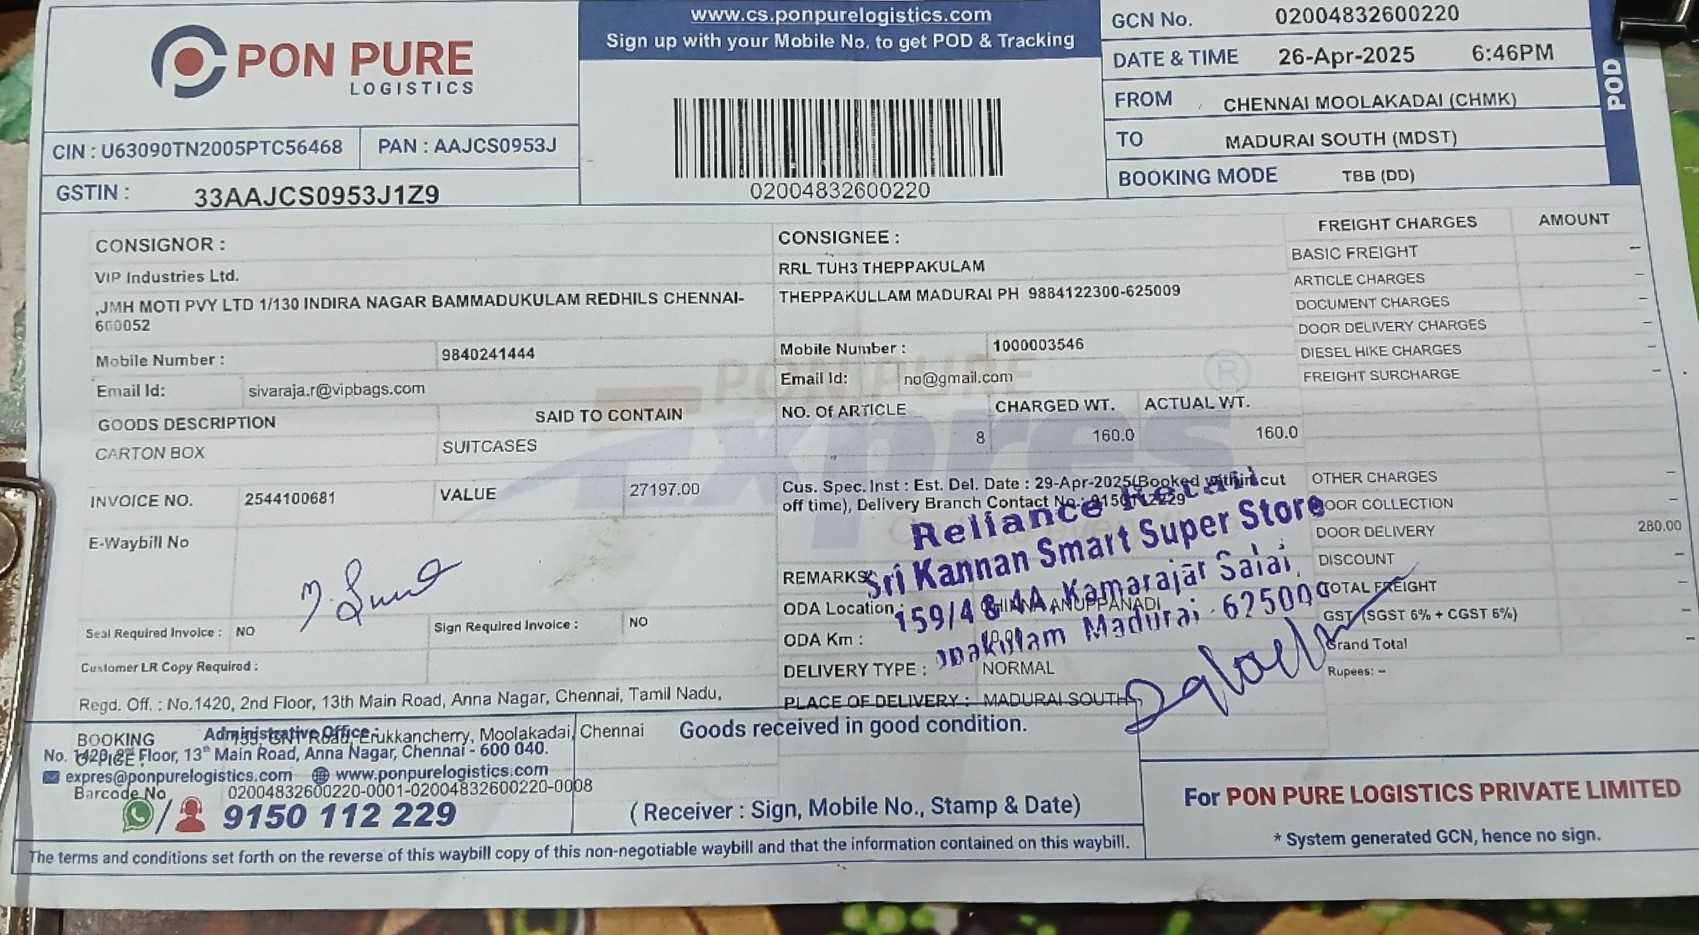 PON PURE
LOGISTICS
CIN : U63090TN2005PTC56468
PAN : AAJCS0953J
GSTIN : 33AAJCS0953J1Z9
www.cs.ponpurelogistics.com
Sign up with your Mobile No. to get POD & Tracking
02004832600220
GCN No. 02004832600220
DATE & TIME 26-Apr-2025 6:46PM
FROM CHENNAI MOOLAKADAI (CHMK)
TO MADURAI SOUTH (MDST)
BOOKING MODE TBB (DD)
POD
CONSIGNOR :
VIP Industries Ltd.
,JMH MOTI PVY LTD 1/130 INDIRA NAGAR BAMMADUKULAM REDHILS CHENNAI-
600052
Mobile Number : 9840241444
Email Id: sivaraja.r@vipbags.com
GOODS DESCRIPTION SAID TO CONTAIN
CARTON BOX SUITCASES
INVOICE NO. 2544100681 VALUE 27197.00
E-Waybill No
Seal Required Invoice : NO Sign Required Invoice : NO
Customer LR Copy Required :
Regd. Off. : No.1420, 2nd Floor, 13th Main Road, Anna Nagar, Chennai, Tamil Nadu,
CONSIGNEE :
RRL TUH3 THEPPAKULAM
THEPPAKULLAM MADURAI PH 9884122300-625009
Mobile Number : 1000003546
Email Id: no@gmail.com
NO. Of ARTICLE CHARGED WT. ACTUAL WT.
8 160.0 160.0
Cus. Spec. Inst : Est. Del. Date : 29-Apr-2025(Booked within cut
off time), Delivery Branch Contact No.:
REMARKS
ODA Location : ANUPPANADI
ODA Km :
DELIVERY TYPE : NORMAL
PLACE OF DELIVERY : MADURAI SOUTH
Reliance Retail
Sri Kannan Smart Super Store
159/4 & 4A, Kamarajar Salai,
Madurai - 625009
FREIGHT CHARGES AMOUNT
BASIC FREIGHT –
ARTICLE CHARGES –
DOCUMENT CHARGES –
DOOR DELIVERY CHARGES –
DIESEL HIKE CHARGES –
FREIGHT SURCHARGE –
OTHER CHARGES –
DOOR COLLECTION –
DOOR DELIVERY 280.00
DISCOUNT –
TOTAL FREIGHT –
GST (SGST 6% + CGST 6%) –
Grand Total –
Rupees: –
BOOKING OFFICE : GNT Road, Erukkancherry, Moolakadai, Chennai
Administrative Office :
No. 1420, 2nd Floor, 13th Main Road, Anna Nagar, Chennai - 600 040.
expres@ponpurelogistics.com www.ponpurelogistics.com
Barcode No 02004832600220-0001-02004832600220-0008
9150 112 229
Goods received in good condition.
(Receiver : Sign, Mobile No., Stamp & Date)
For PON PURE LOGISTICS PRIVATE LIMITED
* System generated GCN, hence no sign.
The terms and conditions set forth on the reverse of this waybill copy of this non-negotiable waybill and that the information contained on this waybill.